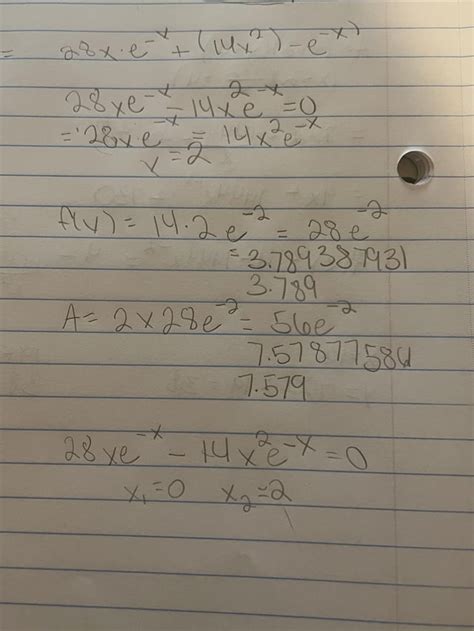 = 28x·e^-x + (14x^2) - e^-x)
28xe^-x - 14x^2e^-x = 0
= 28xe^-x = 14x^2e^-x
x = 2
f(x) = 14·2e^-2 = 28e^-2
= 3.789387931
3.789
A = 2×28e^-2 = 56e^-2
7.578775861
7.579
28xe^-x - 14x^2e^-x = 0
x₁=0 x₂=2